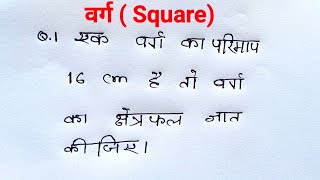 वर्ग ( Square)
Q.1 एक वर्ग का परिमाप
16 cm है तो वर्ग
का क्षेत्रफल ज्ञात
कीजिए।